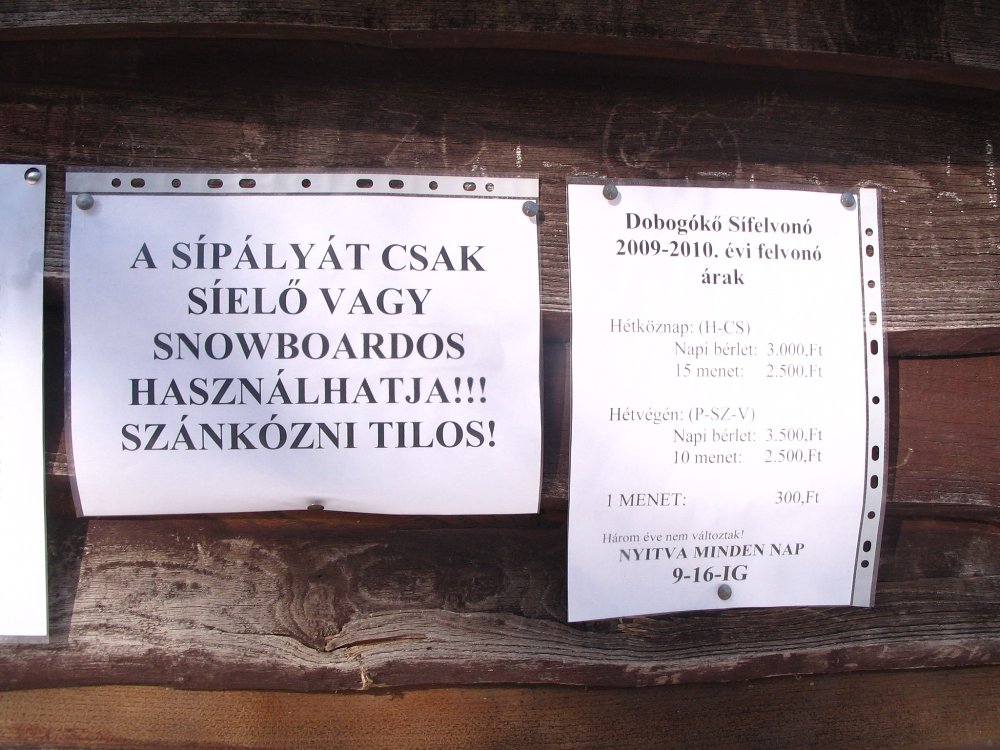 A SÍPÁLYÁT CSAK
SÍELŐ VAGY
SNOWBOARDOS
HASZNÁLHATJA!!!
SZÁNKÓZNI TILOS!
Dobogókő Sífelvonó
2009-2010. évi felvonó
árak
Hétköznap: (H-CS)
Napi bérlet: 3.000,Ft
15 menet: 2.500,Ft
Hétvégén: (P-SZ-V)
Napi bérlet: 3.500,Ft
10 menet: 2.500,Ft
1 MENET: 300,Ft
Három éve nem változtak!
NYITVA MINDEN NAP
9-16-IG